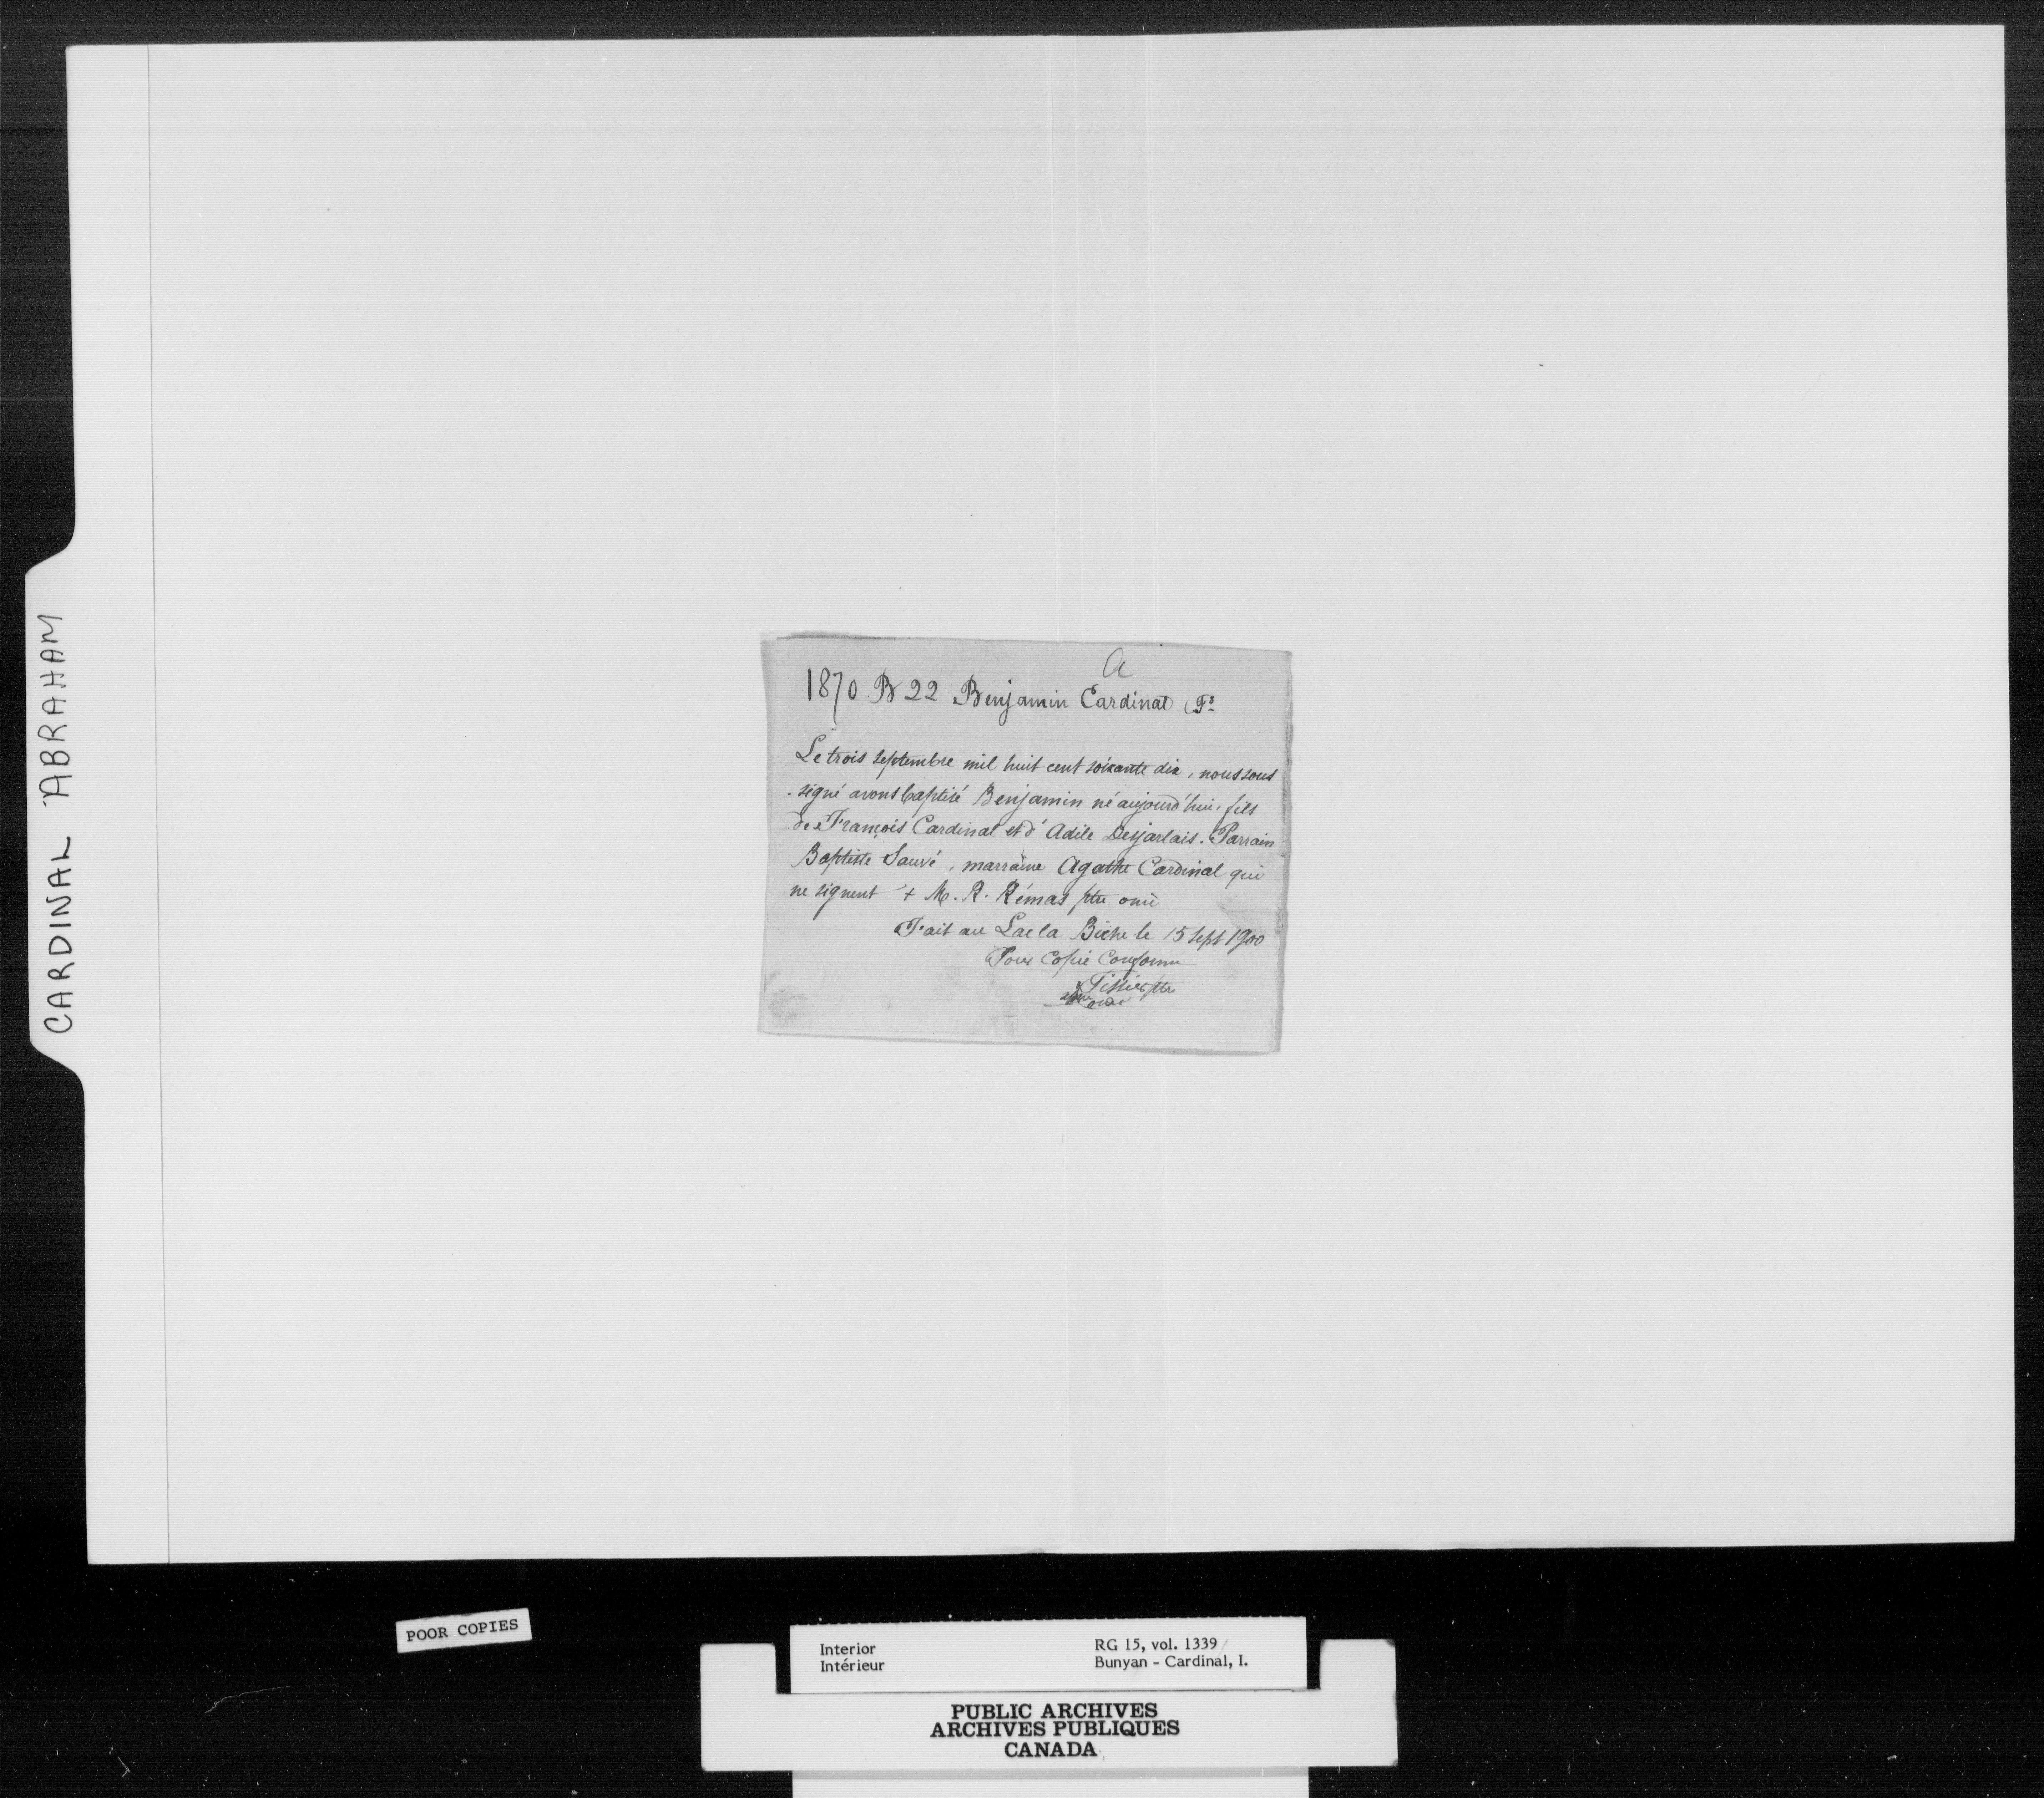 CARDINAL ABRAHAM
a
1870 B 22 Benjamin Cardinal Fs
Le trois septembre mil huit cent soixante dix, nous sous
-signé avons baptisé Benjamin né aujourd'hui, fils
de François Cardinal et d'Adile Desjarlais. Parrain
Baptiste Sauvé, marraine Agathe Cardinal qui
ne signent + M. R. Rémas ptre omi
Fait au Lac la Biche le 15 Sept 1900
Pour Copie Conforme
Tissier ptre
POOR COPIES
Interior
Intérieur
RG 15, vol. 1339
Bunyan - Cardinal, I.
PUBLIC ARCHIVES
ARCHIVES PUBLIQUES
CANADA